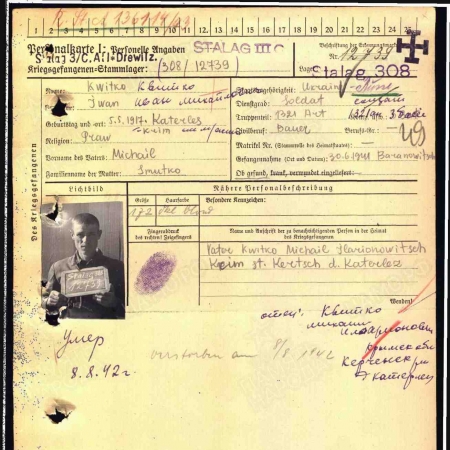 1 2 3 4 5 6 7 8 9 10 11 12 13 14 15 16 17 18 19 20 21 22 23 24 25
Personalkarte I: Personelle Angaben
STALAG III C
Beschriftung der Erkennungsmarke
Kriegsgefangenen-Stammlager:
(308/12739)
Nr. 12739
Lager
Stalag 308
Des Kriegsgefangenen
Name: Kwitko Квитко
Vorname: Iwan Иван
Staatsangehörigkeit: Ukrain
Dienstgrad: Soldat
Geburtstag und -ort: 5.5.1917. Katerlez
Krim
Truppenteil: 1321 Art
Religion: Praw
Zivilberuf: Bauer
Berufs-Gr.:
49
Matrikel Nr. (Stammrolle des Heimatstaates):
Vorname des Vaters: Michail
Gefangennahme (Ort und Datum): 30.6.1941
Familienname der Mutter: Smutko
Ob gesund, krank, verwundet eingeliefert:
Lichtbild
Nähere Personalbeschreibung
Größe
Haarfarbe
Besondere Kennzeichen:
172
blond
Fingerabdruck
des rechten! Zeigefingers
Name und Anschrift der zu benachrichtigenden Person in der Heimat
des Kriegsgefangenen
Stalag
12739
Vater Kwitko Michail Ilarionowitsch
Krim st. Kertsch d. Katerlez
Wenden!
отец: Квитко
Михаил
Иларионович
Крымская
Керченск
Катерлез
Умер
8.8.42г.
verstorben am 8/8 1942